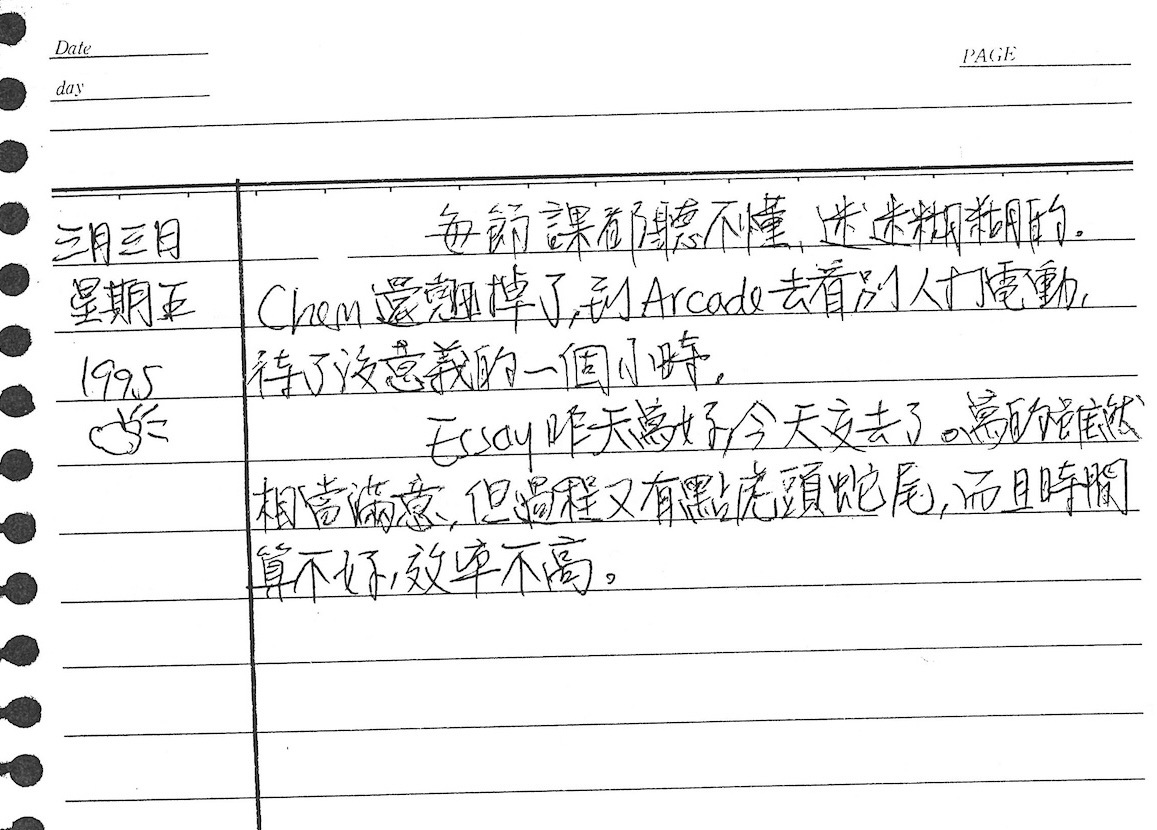 Date
PAGE
day
三月三日
星期五
1995
每節課都聽不懂,迷迷糊糊的.
Chem還翹掉了,到Arcade去看別人打電動,
待了沒意義的一個小時.
Essay昨天寫好,今天交去了。寫的雖然
相當滿意,但過程又有點虎頭蛇尾,而且時間
算不好,效率不高。